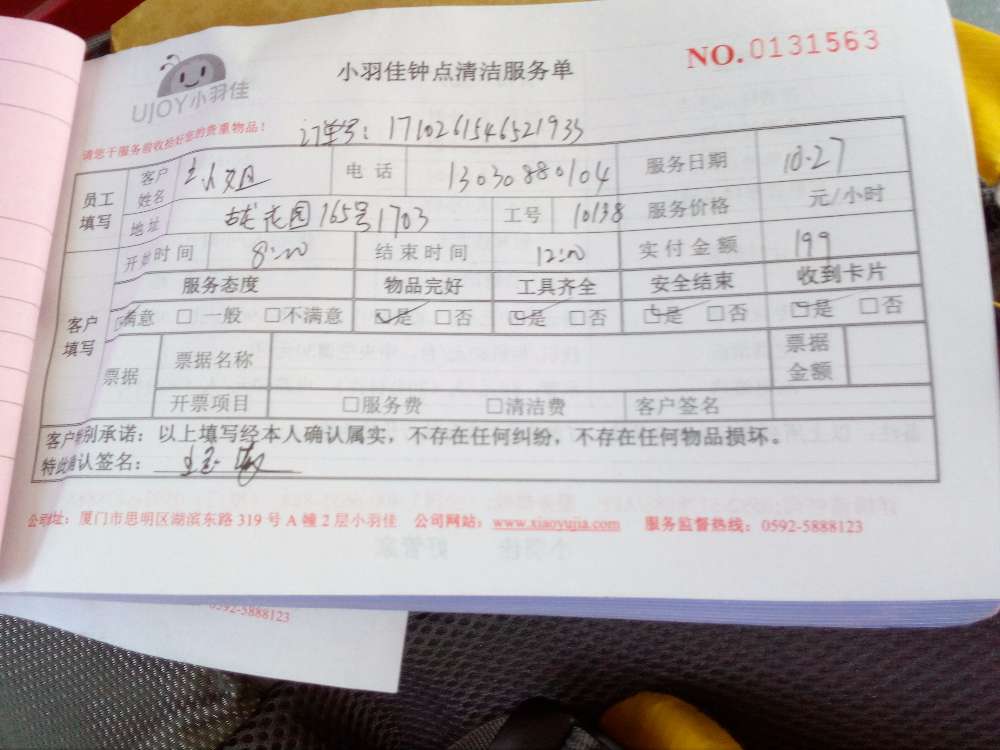 UJOY小羽佳
小羽佳钟点清洁服务单
NO.0131563
请您于服务前收拾好您的贵重物品！
订单号：1710261546521933
员工填写 客户姓名 小姐 电话 13030880104 服务日期 10.27
地址 花园165号1703 工号 10138 服务价格 元/小时
开始时间 8:00 结束时间 12:00 实付金额 199
客户填写 服务态度 物品完好 工具齐全 安全结束 收到卡片
□满意 □一般 □不满意 □是 □否 □是 □否 □是 □否 □是 □否
票据 票据名称 票据金额
开票项目 □服务费 □清洁费 客户签名
客户特别承诺：以上填写经本人确认属实，不存在任何纠纷，不存在任何物品损坏。
特此确认签名：
公司地址：厦门市思明区湖滨东路319号A幢2层小羽佳 公司网站：www.xiaoyujia.com 服务监督热线：0592-5888123
0592-5888123